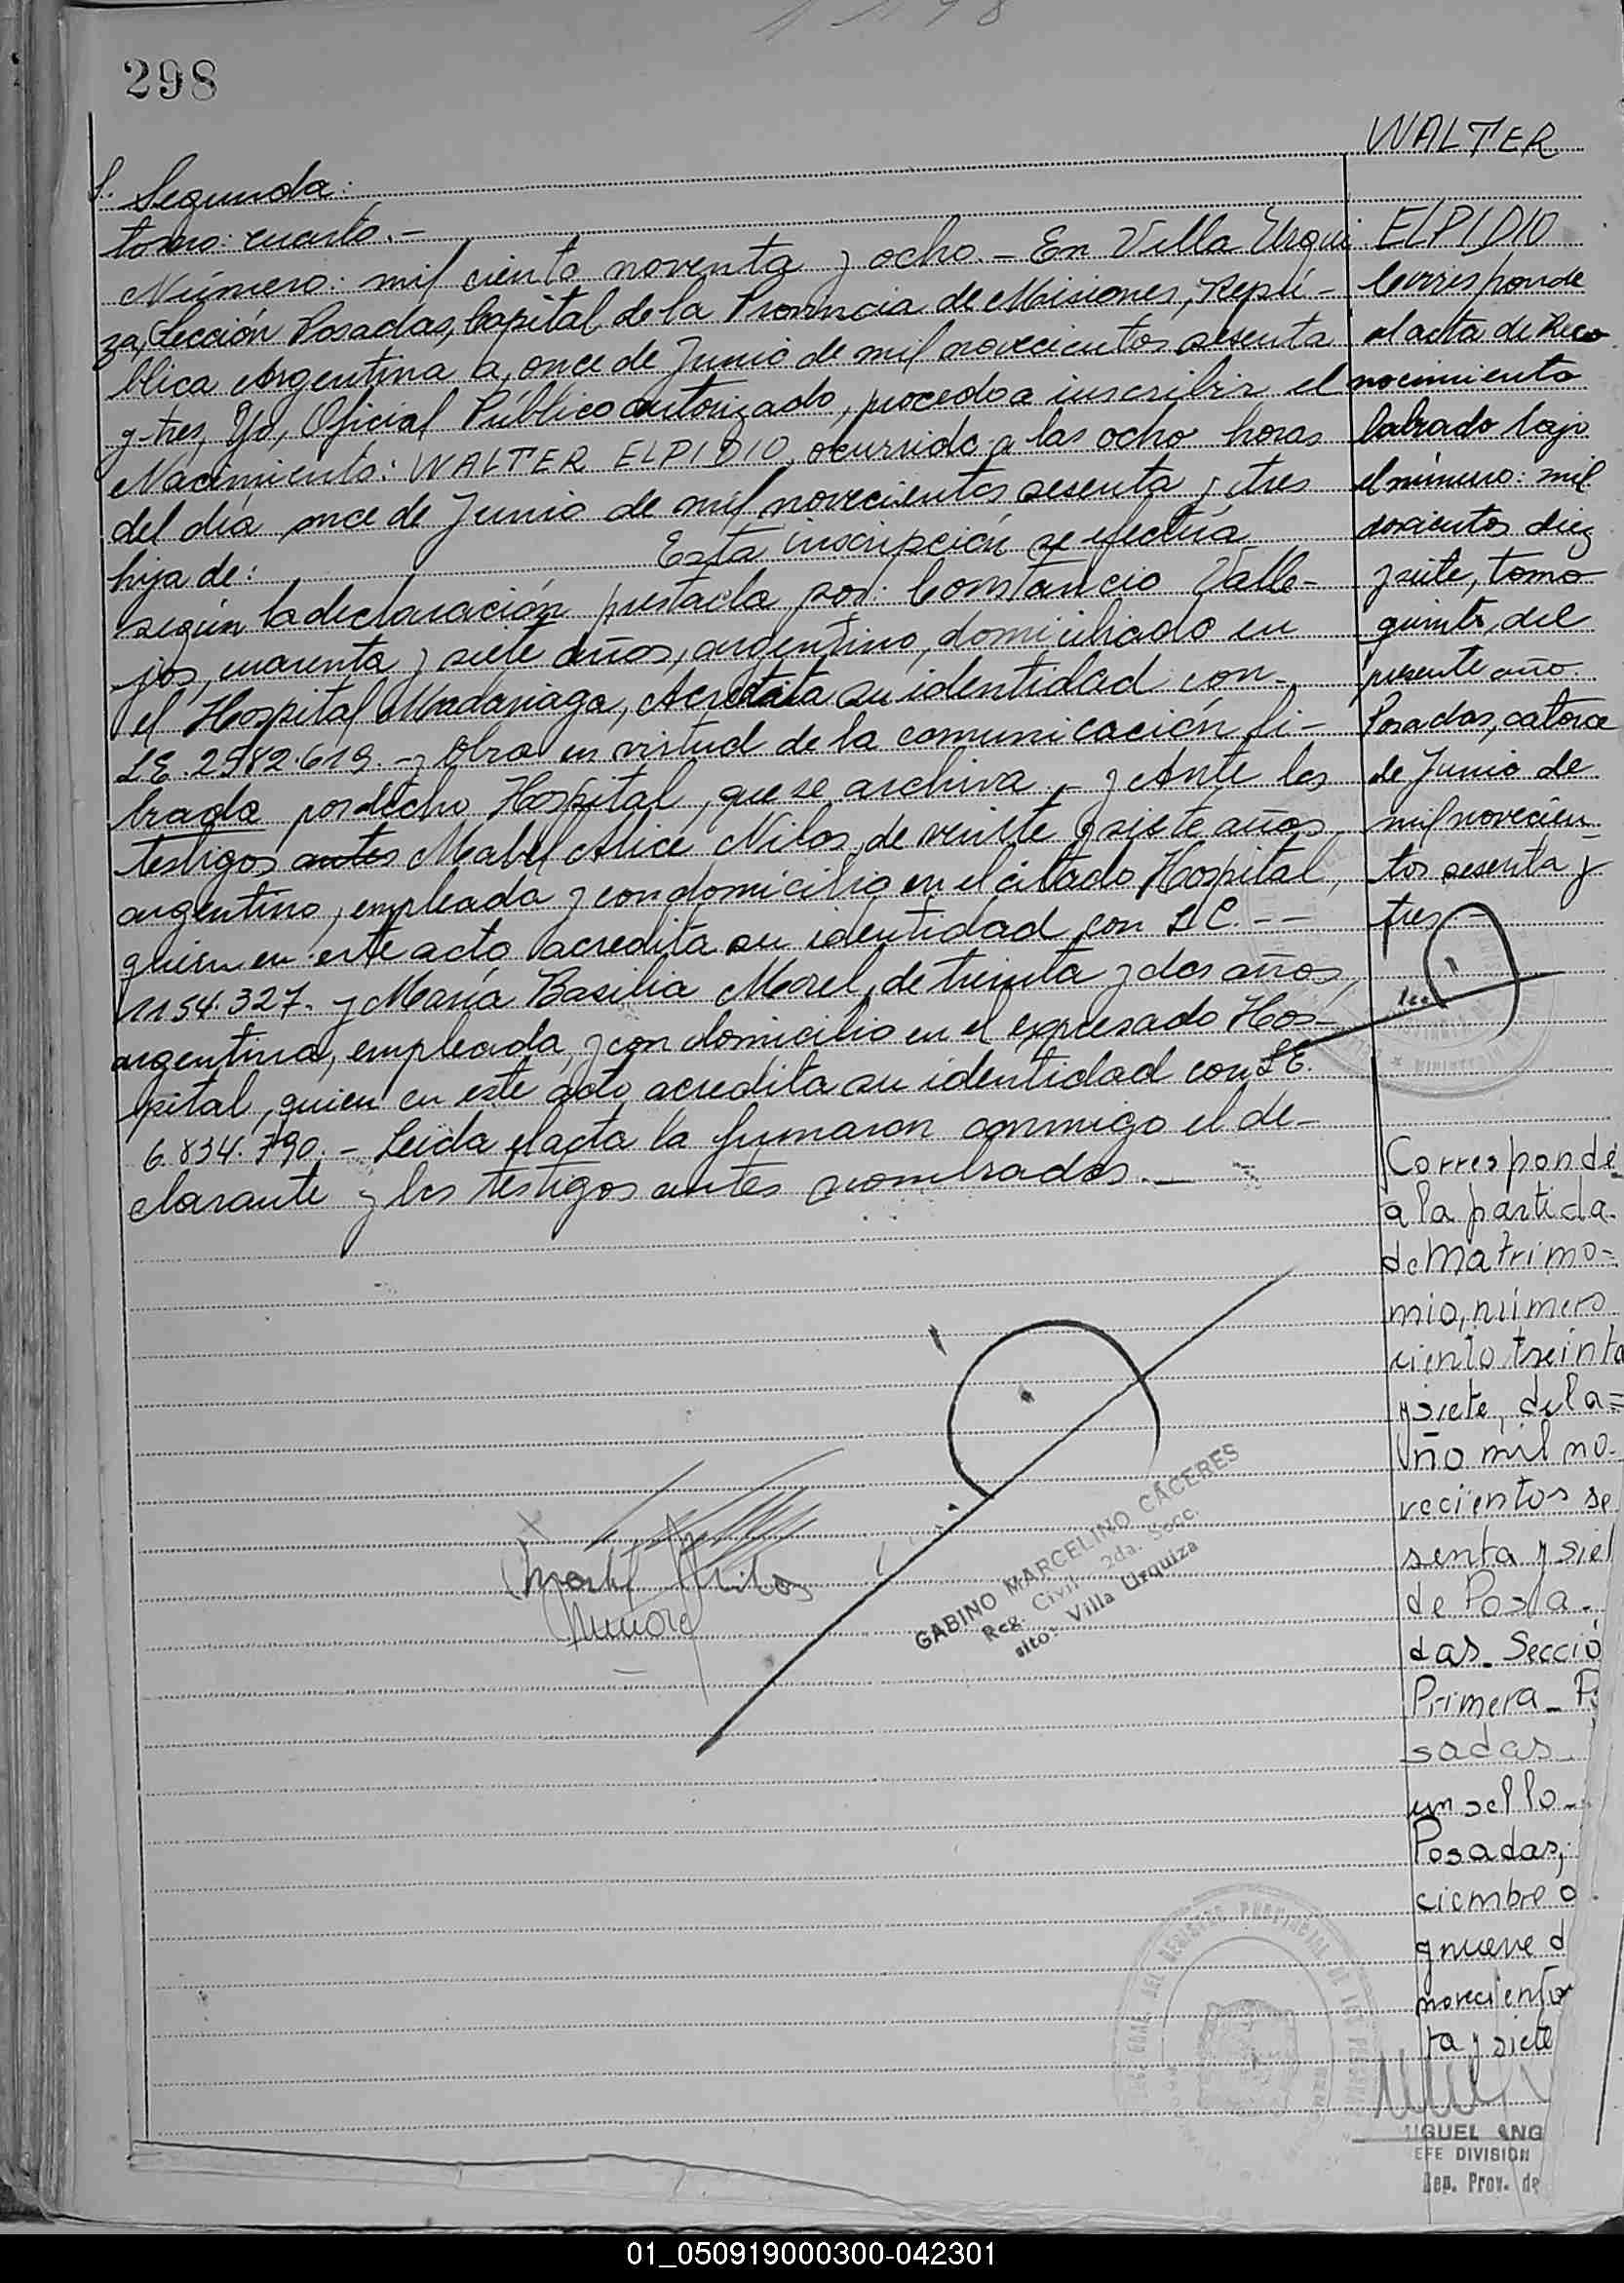 1198
298
S. Segunda:
tomo: cuarto.-
Número: mil ciento noventa y ocho.- En Villa Urqui
za, Sección Posadas, Capital de la Provincia de Misiones, Repú-
blica Argentina a, once de Junio de mil novecientos sesenta
y tres, Yo, Oficial Público autorizado, procedo a inscribir el
Nacimiento: WALTER ELPIDIO, ocurrido a las ocho horas
del día, once de Junio de mil novecientos sesenta y tres
hija de: Esta inscripción se efectúa
según la declaración prestada por: Constancio Valle-
jos, cuarenta y siete años, argentino, domiciliado en
el Hospital Madariaga, Acredita su identidad con-
L.E. 2582.619.- y Obra en virtud de la comunicación li-
brada por dicho Hospital, que se archiva.- y Ante los
testigos antes Mabel Alice Nilos, de veinte y siete años,
argentino, empleada y con domicilio en el citado Hospital,
quien en este acto acredita su identidad con L.C. --
1154.327. y María Basilia Morel, de treinta y dos años,
argentina, empleada, y con domicilio en el expresado Hos-
pital, quien en este acto acredita su identidad con L.E.
6.834.790.- Leída el acta la firmaron conmigo el de-
clarante y los testigos antes nombrados.-
GABINO MARCELINO CÁCERES
Reg. Civil 2da. Secc.
sito: Villa Urquiza
WALTER
ELPIDIO
Corresponde
al acta de Reco
nocimiento
labrado bajo
el número: mil
doscientos diez
y siete, tomo
quinto, del
presente año.
Posadas, catorce
de Junio de
mil novecien
tos sesenta y
tres.-
Corresponde
a la partida
de Matrimo=
nio, número
ciento treinta
y siete, del a=
ño mil no-
vecientos se
senta y siet
de Posa-
das. Secció
Primera - P
sadas
un sello-
Posadas,
ciembre
y nueve d
novecientos
ta y siete
IGUEL ANG
EFE DIVISION
Reg. Prov. de
01_050919000300-042301